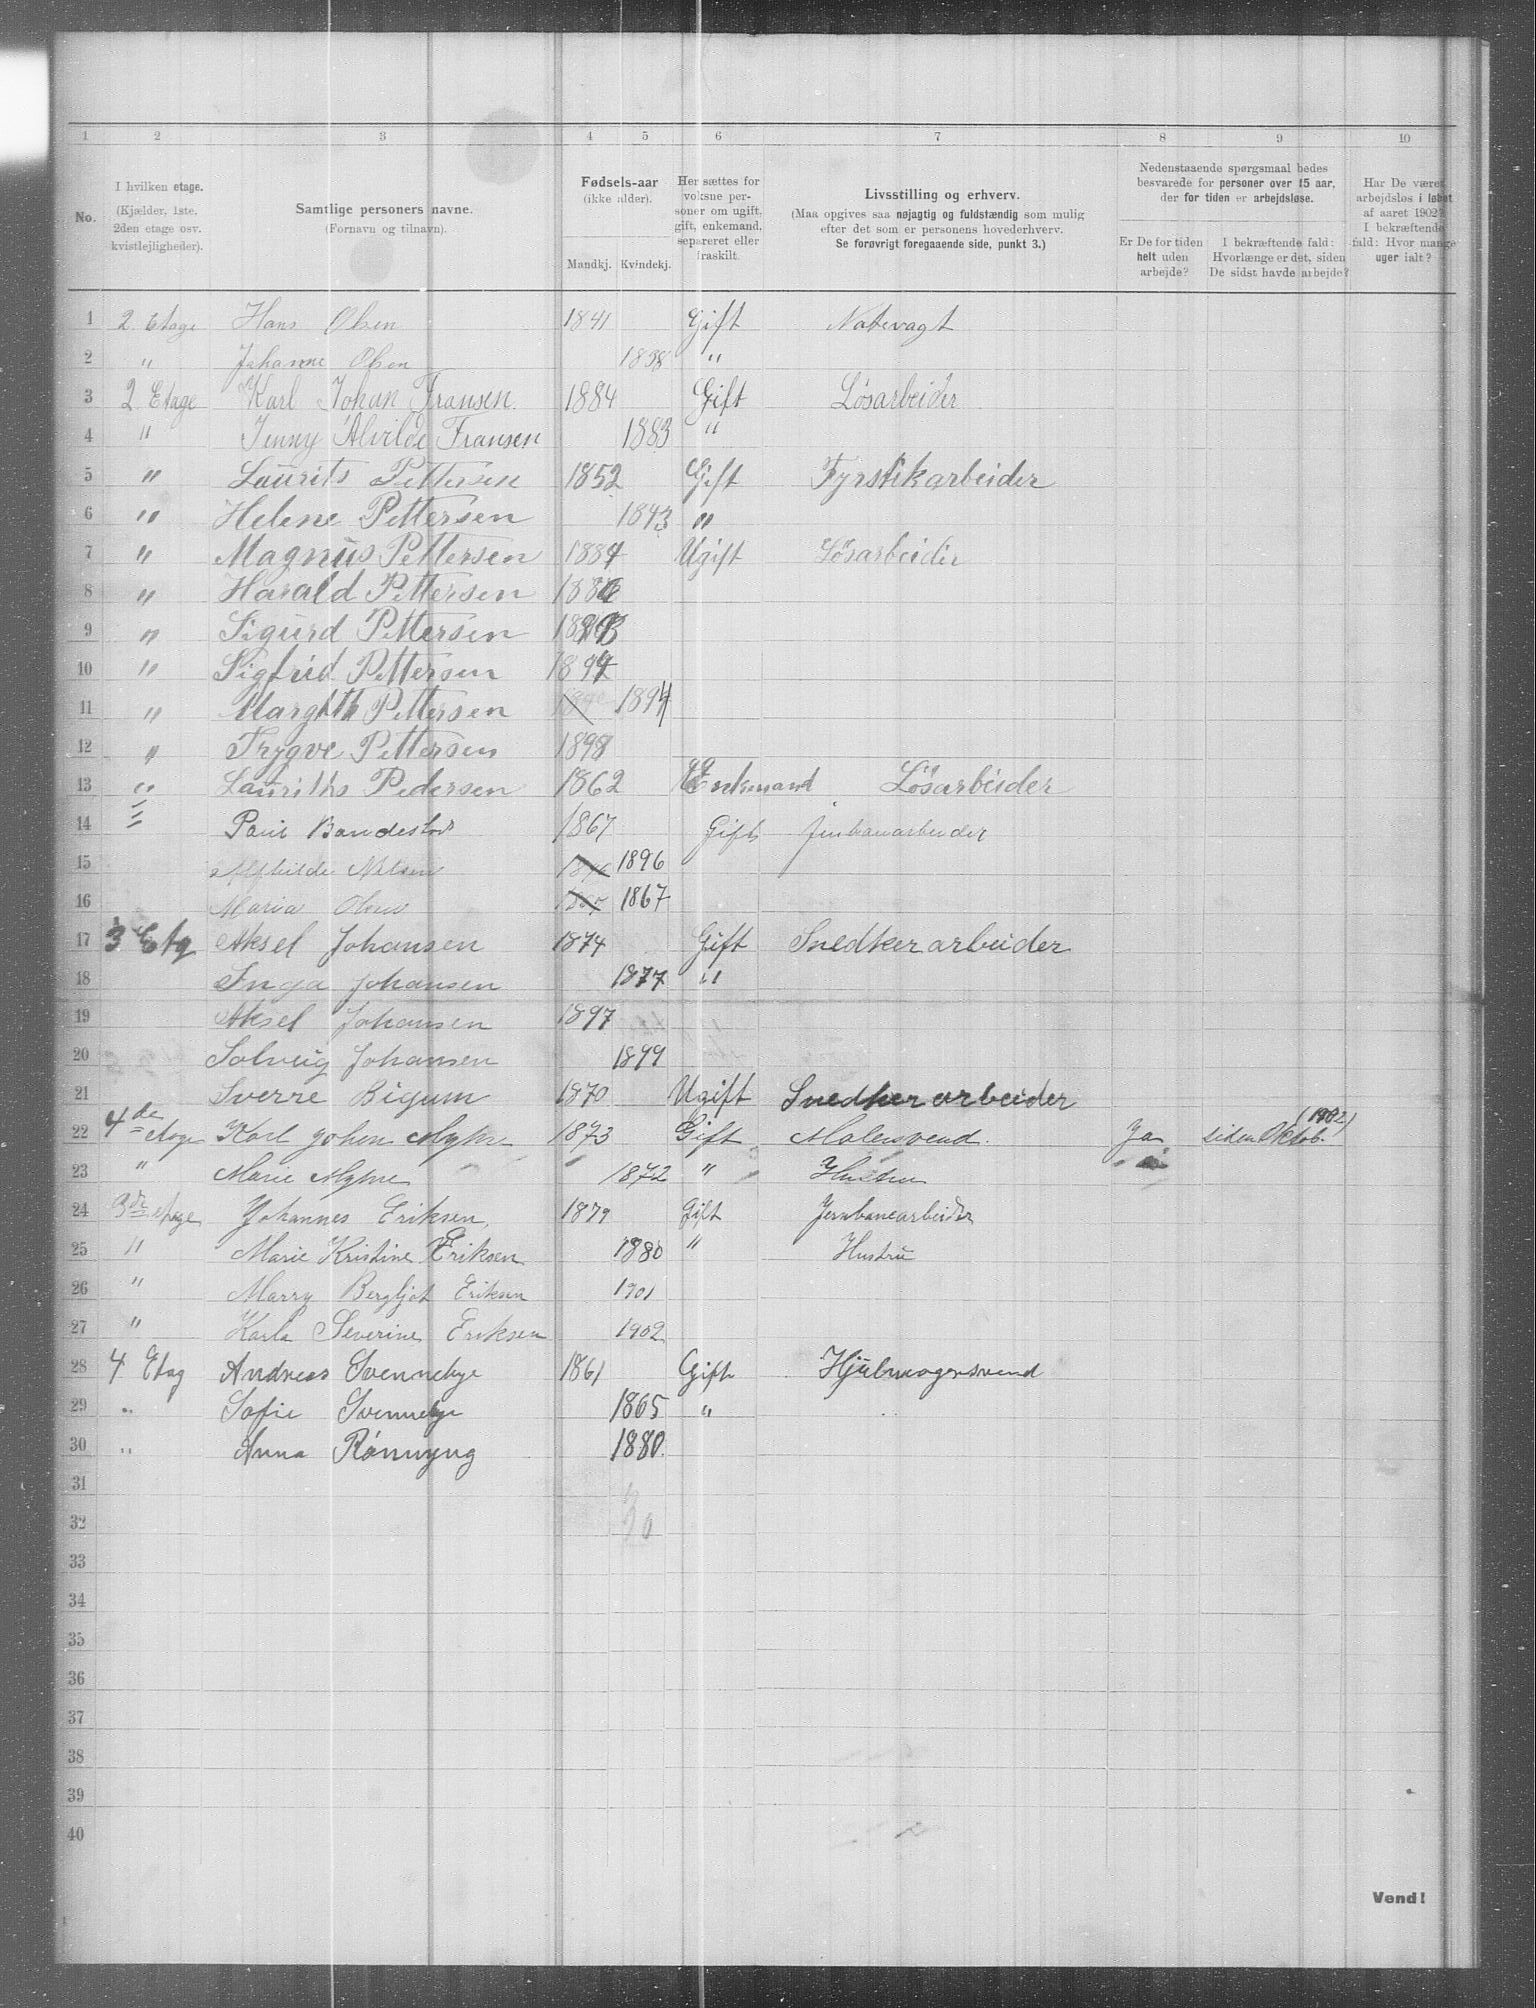 1 2 3 4 5 6 7 8 9 10
No.
I hvilken etage.
(Kjælder, 1ste,
2den etage osv.
kvistlejligheder).
Samtlige personers navne.
(Fornavn og tilnavn).
Fødsels-aar
(ikke alder).
Mandkj. Kvindekj.
Her sættes for
voksne per-
soner om ugift,
gift, enkemand,
separeret eller
fraskilt.
Livsstilling og erhverv.
(Maa opgives saa nøjagtig og fuldstændig som mulig
efter det som er personens hovederhverv.
Se forøvrigt foregaaende side, punkt 3.)
Nedenstaaende spørgsmaal bedes
besvarede for personer over 15 aar,
der for tiden er arbejdsløse.
Er De for tiden
helt uden
arbejde?
I bekræftende fald:
Hvorlænge er det, siden
De sidst havde arbejde?
Har De været
arbejdsløs i løbet
af aaret 1902?
I bekræftende
fald: Hvor mange
uger ialt?
1 2 Etage Hans Olsen 1841 Gift Natevagt
2 " Johanne Olsen 1838 "
3 2 Etage Karl Johan Fransen. 1884 Gift Løsarbeider
4 " Jenny Alvilde Fransen 1883 "
5 " Laurits Pettersen 1852 Gift Fyrstikarbeider
6 " Helene Pettersen 1843 "
7 " Magnus Pettersen 1884 Ugift Løsarbeider
8 " Harald Pettersen
9 " Sigurd Pettersen
10 " Sigfrid Pettersen 1894
11 " Margith Pettersen 1894
12 " Trygve Pettersen 1898
13 " Lauriths Pedersen 1862 Enkemand Løsarbeider
14 " Paul 1867 Gift
15 Alfhilde Nilsen 1896
16 Maria Olsen 1867
17 3 Etg Aksel Johansen 1874 Gift Snedkerarbeider
18 Inga Johansen 1877 "
19 Aksel Johansen 1897
20 Solveig Johansen 1899
21 Sverre Bigum 1870 Ugift Snedkerarbeider
22 4de etage Karl Johan Myhre 1873 Gift Malersvend. Ja siden Oktob. (1902)
23 " Marie Myhre 1872 " Hustru
24 3de etage Johannes Eriksen, 1879 Gift Jernbanearbeider
25 " Marie Kristine Eriksen 1880 " Hustru
26 " Marry Bergljot Eriksen 1901
27 " Karla Severine Eriksen 1902
28 4 Etag Andreas Svennebye 1861 Gift Hjulmagersvend
29 " Sofie Svennebye 1865 "
30 " Anna Rønnyng 1880.
31
32
33
34
35
36
37
38
39
40
Vend!